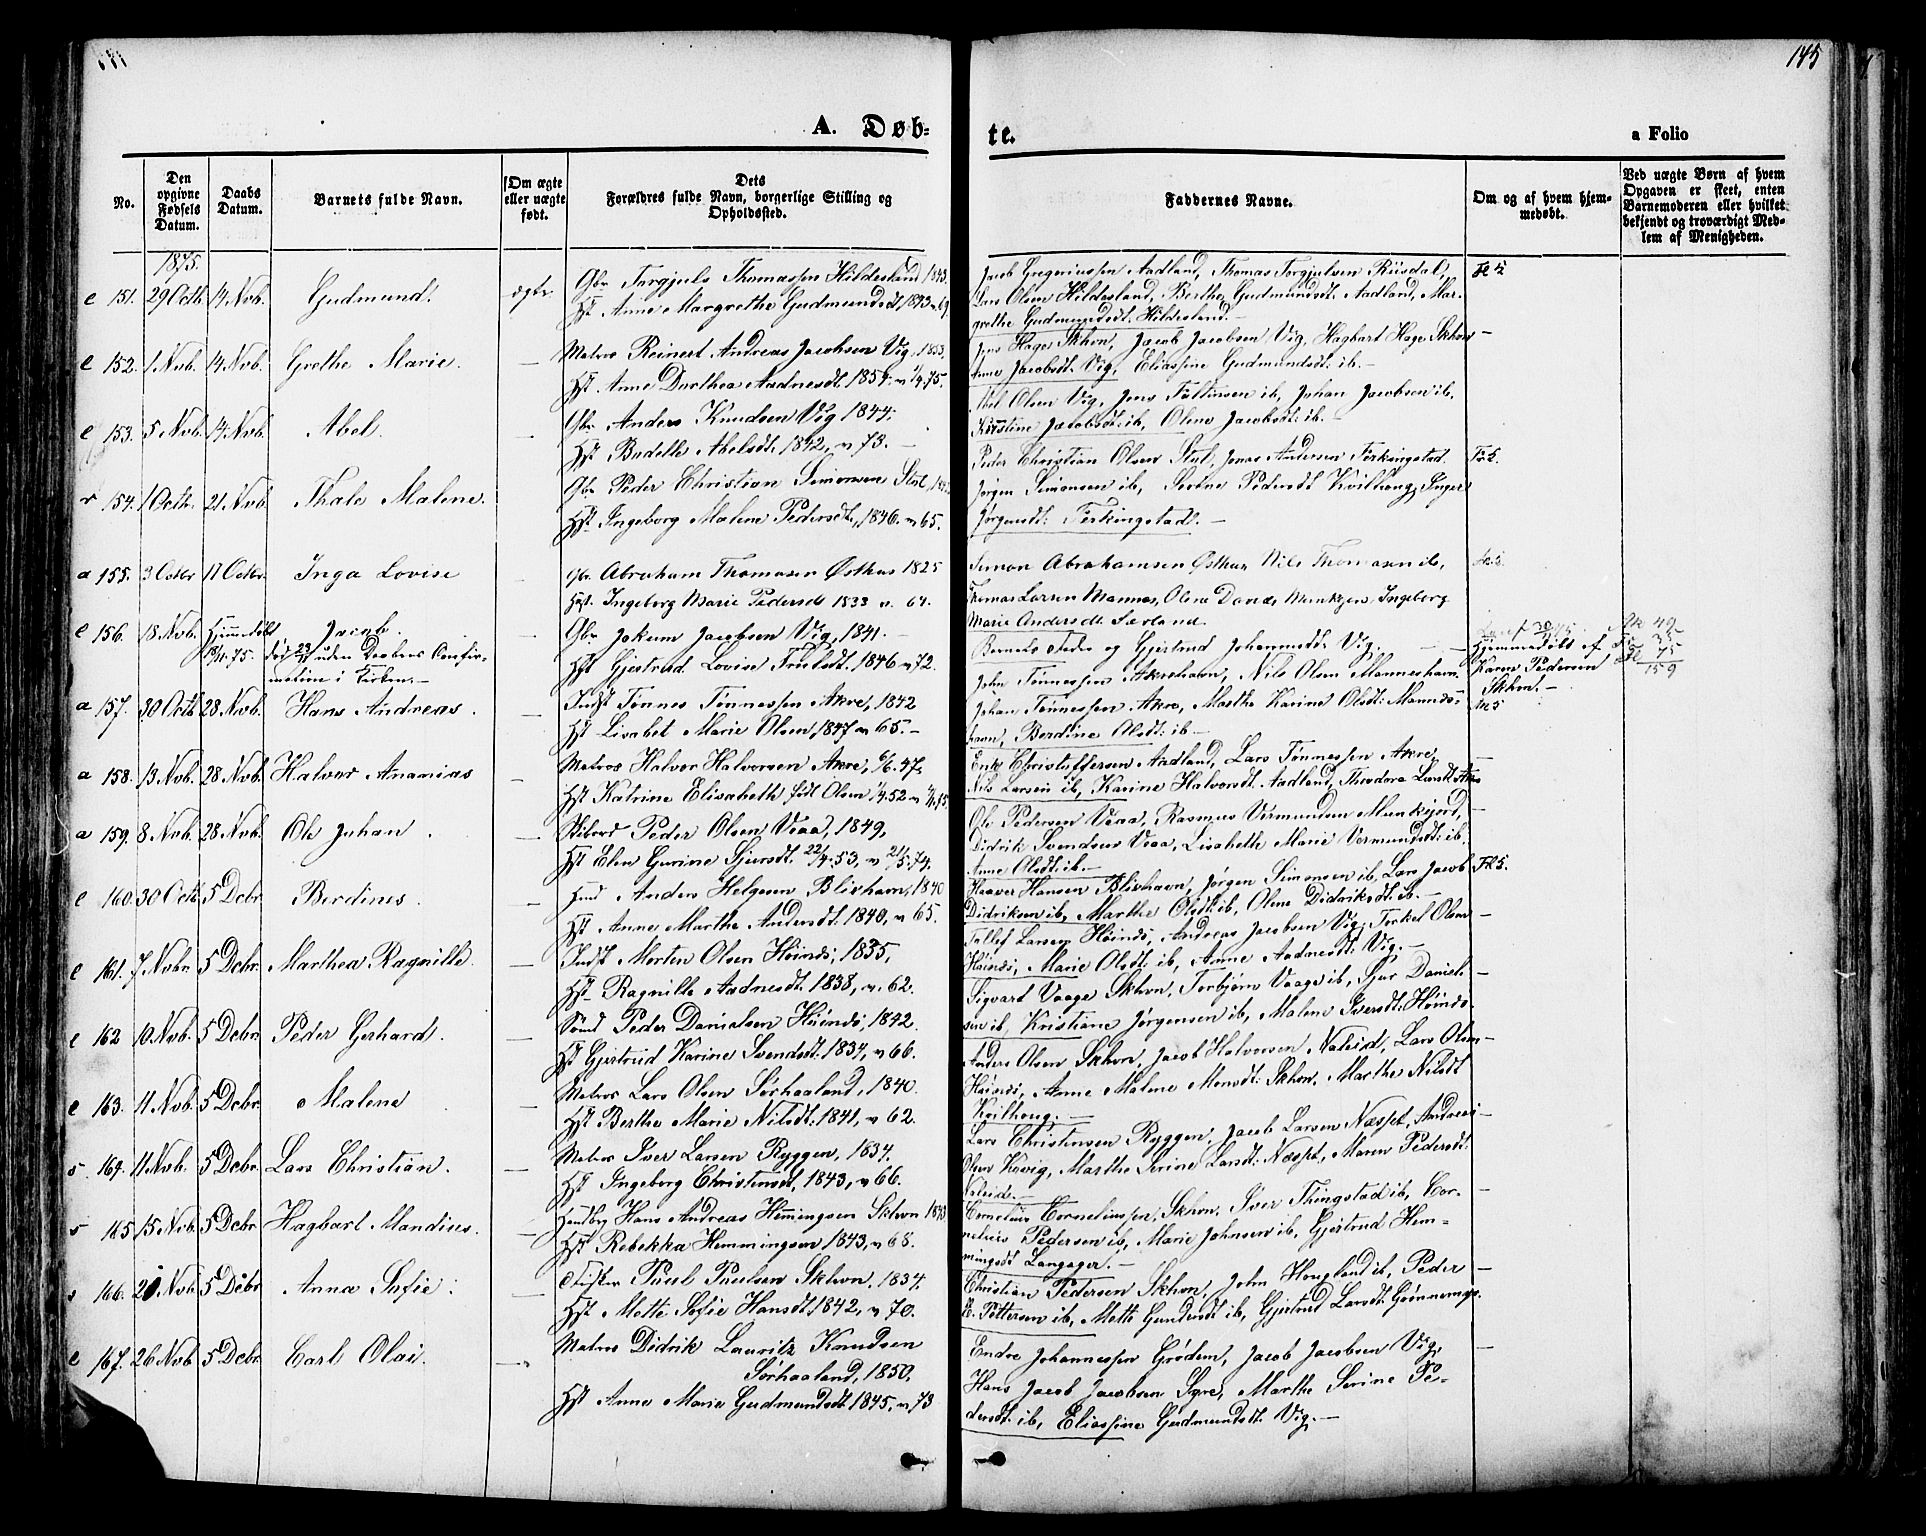 145
A. Døb-
te.
a Folio
No.
Den opgivne Fødsels Datum.
Daabs Datum.
Barnets fulde Navn.
Om ægte eller uægte født.
Dets Forældres fulde Navn, borgerlige Stilling og Opholdssted.
Faddernes Navne.
Om og af hvem hjemmedøbt.
Ved uægte Børn af hvem Opgaven er skeet, enten Barnemoderen eller hvilket bekjendt og troværdigt Medlem af Menigheden.
1875.
e 151. 29 Octb. 14 Nvb. Gudmund. ægte Gbr Torgjuls Thomassen Hildesland 1843.
Hst Anne Margrethe Gudmundsdt 1843 v. 69
Jacob Gregoriussen Aadland, Thomas Torgjulsen Riisdal,
Lars Olsen Hildesland, Berthe Gudmundsdt. Aadland, Mar-
grethe Gudmundsdt. Hildesland.
e 152. 1 Nvb. 14 Nvb. Grethe Marie. — Matros Reinert Andreas Jacobsen Vig, 1853,
Hst. Anne Dorthea Aadnesdt. 1854.
Jens Hage Skhvn, Jacob Jacobsen Vig, Hagbart Hage Skhvn —
Anne Jacobsdt. Vig, Eliassine Gudmundsdt. ib. —
e 153. 5 Nvb. 14 Nvb. Abel. — Gbr Anders Knudsen Vig 1844.
Hst Bodelle Abelsdt. 1842, v 73. —
Abel Olsen Vig, Jens Faltinsen ib, Johan Jacobsen ib.
Kirstine Jacobsdt. ib, Olene Jacobsdt. ib. —
r 154. 1 Octb. 21 Nvb. Thale Malene. — Gbr Peder Christian Simonsen Stol,
Hst. Ingeborg Malene Pedersdt., 1846. v 65.
Peder Christian Olsen Stol, Jonas Andersen Ferkingstad.
Jørgen Simonsen ib, Serine Pedersdt Kvilhaug, Inger
Jørgensdt. Ferkingstad. —
a 155. 3 Octbr 17 Octbr. Inga Lovise — Gbr. Abraham Thomasen Østhus 1825
Hst. Ingeborg Marie Pedersdt 1833 v. 64.
Simon Abrahamsen Østhus Nils Thomasen ib,
Thomas Larsen Mannes, Olene Ingeborg
Marie Andersdt. Sæveland.
e 156. 18 Nvb. Hjemmedøbt Jacob.
18/11.75. død 23/11 uden Daabens Confir-
mation i Kirken. —
Gbr Jokum Jacobsen Vig, 1841. —
Hst Gjertrud Lovise 1846 v 72.
Barnets Fader og Gjertrud Johannesdt. Vig. — Hjemmedøbt af
Karen Pedersen
Skhvn. —
49
35
75
159
a 157. 30 Octb 28 Nvb. Hans Andreas. — Indst Tønnes Tønnessen Akre, 1842
Hst Lisabet Marie Olsen 1847 v 65. —
John Tønnessen Akrehavn, Nils Olsen Manneshavn
Johan Tønnessen Akre, Marthe Karine Olsdt. Mannes-
havn, Berdine Olsdt. ib —
a 158. 13 Nvb. 28 Nvb. Halvor Ananias — Matros Halvor Halvorsen Akre, 6/6. 47,
Hst Katrine Elisabeth født Olsen
Erik Christoffersen Aadland, Lars Tønnessen Akre, —
Nils Larsen ib, Karine Halvorsdt. Aadland, Theodora Larsdt Akre
a 159. 8 Nvb. 28 Nvb. Ole Johan. — Peder Olsen Veaa, 1849,
Hst Elen Gurine Sjursdt. 22/4. 53, v 21/5. 74.
Ole Pedersen Veaa, Rasmus Vermundsen Munkejord, —
Didrik Svendsen Veaa, Lisabeth Marie Vermundsdt. ib.
Anne Olsdt. ib. —
e 160. 30 Octb 5 Dcbr. Berdines. — Hmd Anders Helgesen Blixhavn, 1840
Hst Anne Marthe Andersdt. 1840, v 65.
Haaver Hansen Blixhavn, Jørgen Simonsen ib, Lars Jacob
Didriksen ib, Marthe Olsdt. ib, Olene Didriksdt. ib. —
e 161. 7 Nvbr. 5 Dcbr. Marthea Ragnille. — Indst Morten Olsen Høinds, 1835,
Hst Ragnille Aadnesdt. 1838, v. 62.
Tollef Larsen Høinds, Andreas Jacobsen Vig, Torkel Olsen —
Høinds, Marie Olsdt. ib, Anne Aadnesdt. Vig. —
e 162 10 Nvb. 5 Dcbr. Peder Gerhard. — Sømd Peder Danielsen Høinds, 1842.
Hst Gjertrud Karine Svendsdt. 1834, v 66.
Sigvart Vaage Skhvn, Torbjørn Vaage ib, Sjur Daniel- —
sen ib, Kristiane Jørgensen ib, Malene Iversdt. Høinds.
e 163. 11 Nvb. 5 Dcbr. Malene — Matros Lars Olsen Sørhaaland, 1840.
Hst Berthe Marie Nilsdt. 1841, v 62.
Anders Olsen Skhvn, Jacob Halvorsen Nalеid, Lars Olsen —
Høinds, Anne Malene Monsdt. Skhvn, Marthe Nilsdt
Kvilhaug. —
s 164. 11 Nvb. 5 Dcbr. Lars Christian. — Matros Iver Larsen Ryggen, 1834.
Hst Ingeborg Christensdt. 1843, v 66.
Lars Christensen Ryggen, Jacob Larsen Næsset, Andreas —
Olsen Kavig, Marthe Serine Larsdt. Næsset, Maren Pedersdt.
s 165 15 Nvb. 5 Dcbr. Hagbart Mandius. — Hans Andreas Hemingsen Skhvn 1843
Hst Rebekka Hemmingsen 1843, v 68.
Cornelius Corneliussen, Skhvn, Iver Thingstad ib, Cor- —
nelius Pedersen ib, Marie Johnsen ib, Gjertrud Hem-
mingsdt Langager. —
s 166. 21 Nvb. 5 Dcbr Anna Sofie. — Poul Poulsen Skhvn, 1834.
Hst Mette Sofie Hansdt. 1842, v 70.
Christian Pedersen Skhvn, John Hougland ib, Peder —
Pettersen ib, Mette Gundersdt ib, Gjertrud Larsdt.
e 167. 26 Nvb. 5 Dcbr. Carl Olai. — Matros Didrik Lauritz Knudsen
Sørhaaland, 1850,
Hst Anne Marie Gudmundsdt 1845, v 73
Endre Johannessen Grødem, Jacob Jacobsen Vig, —
Hans Jacob Jacobsen Syre, Marthe Serine Pe-
dersdt. ib, Eliassine Gudmundsdt. Vig. —